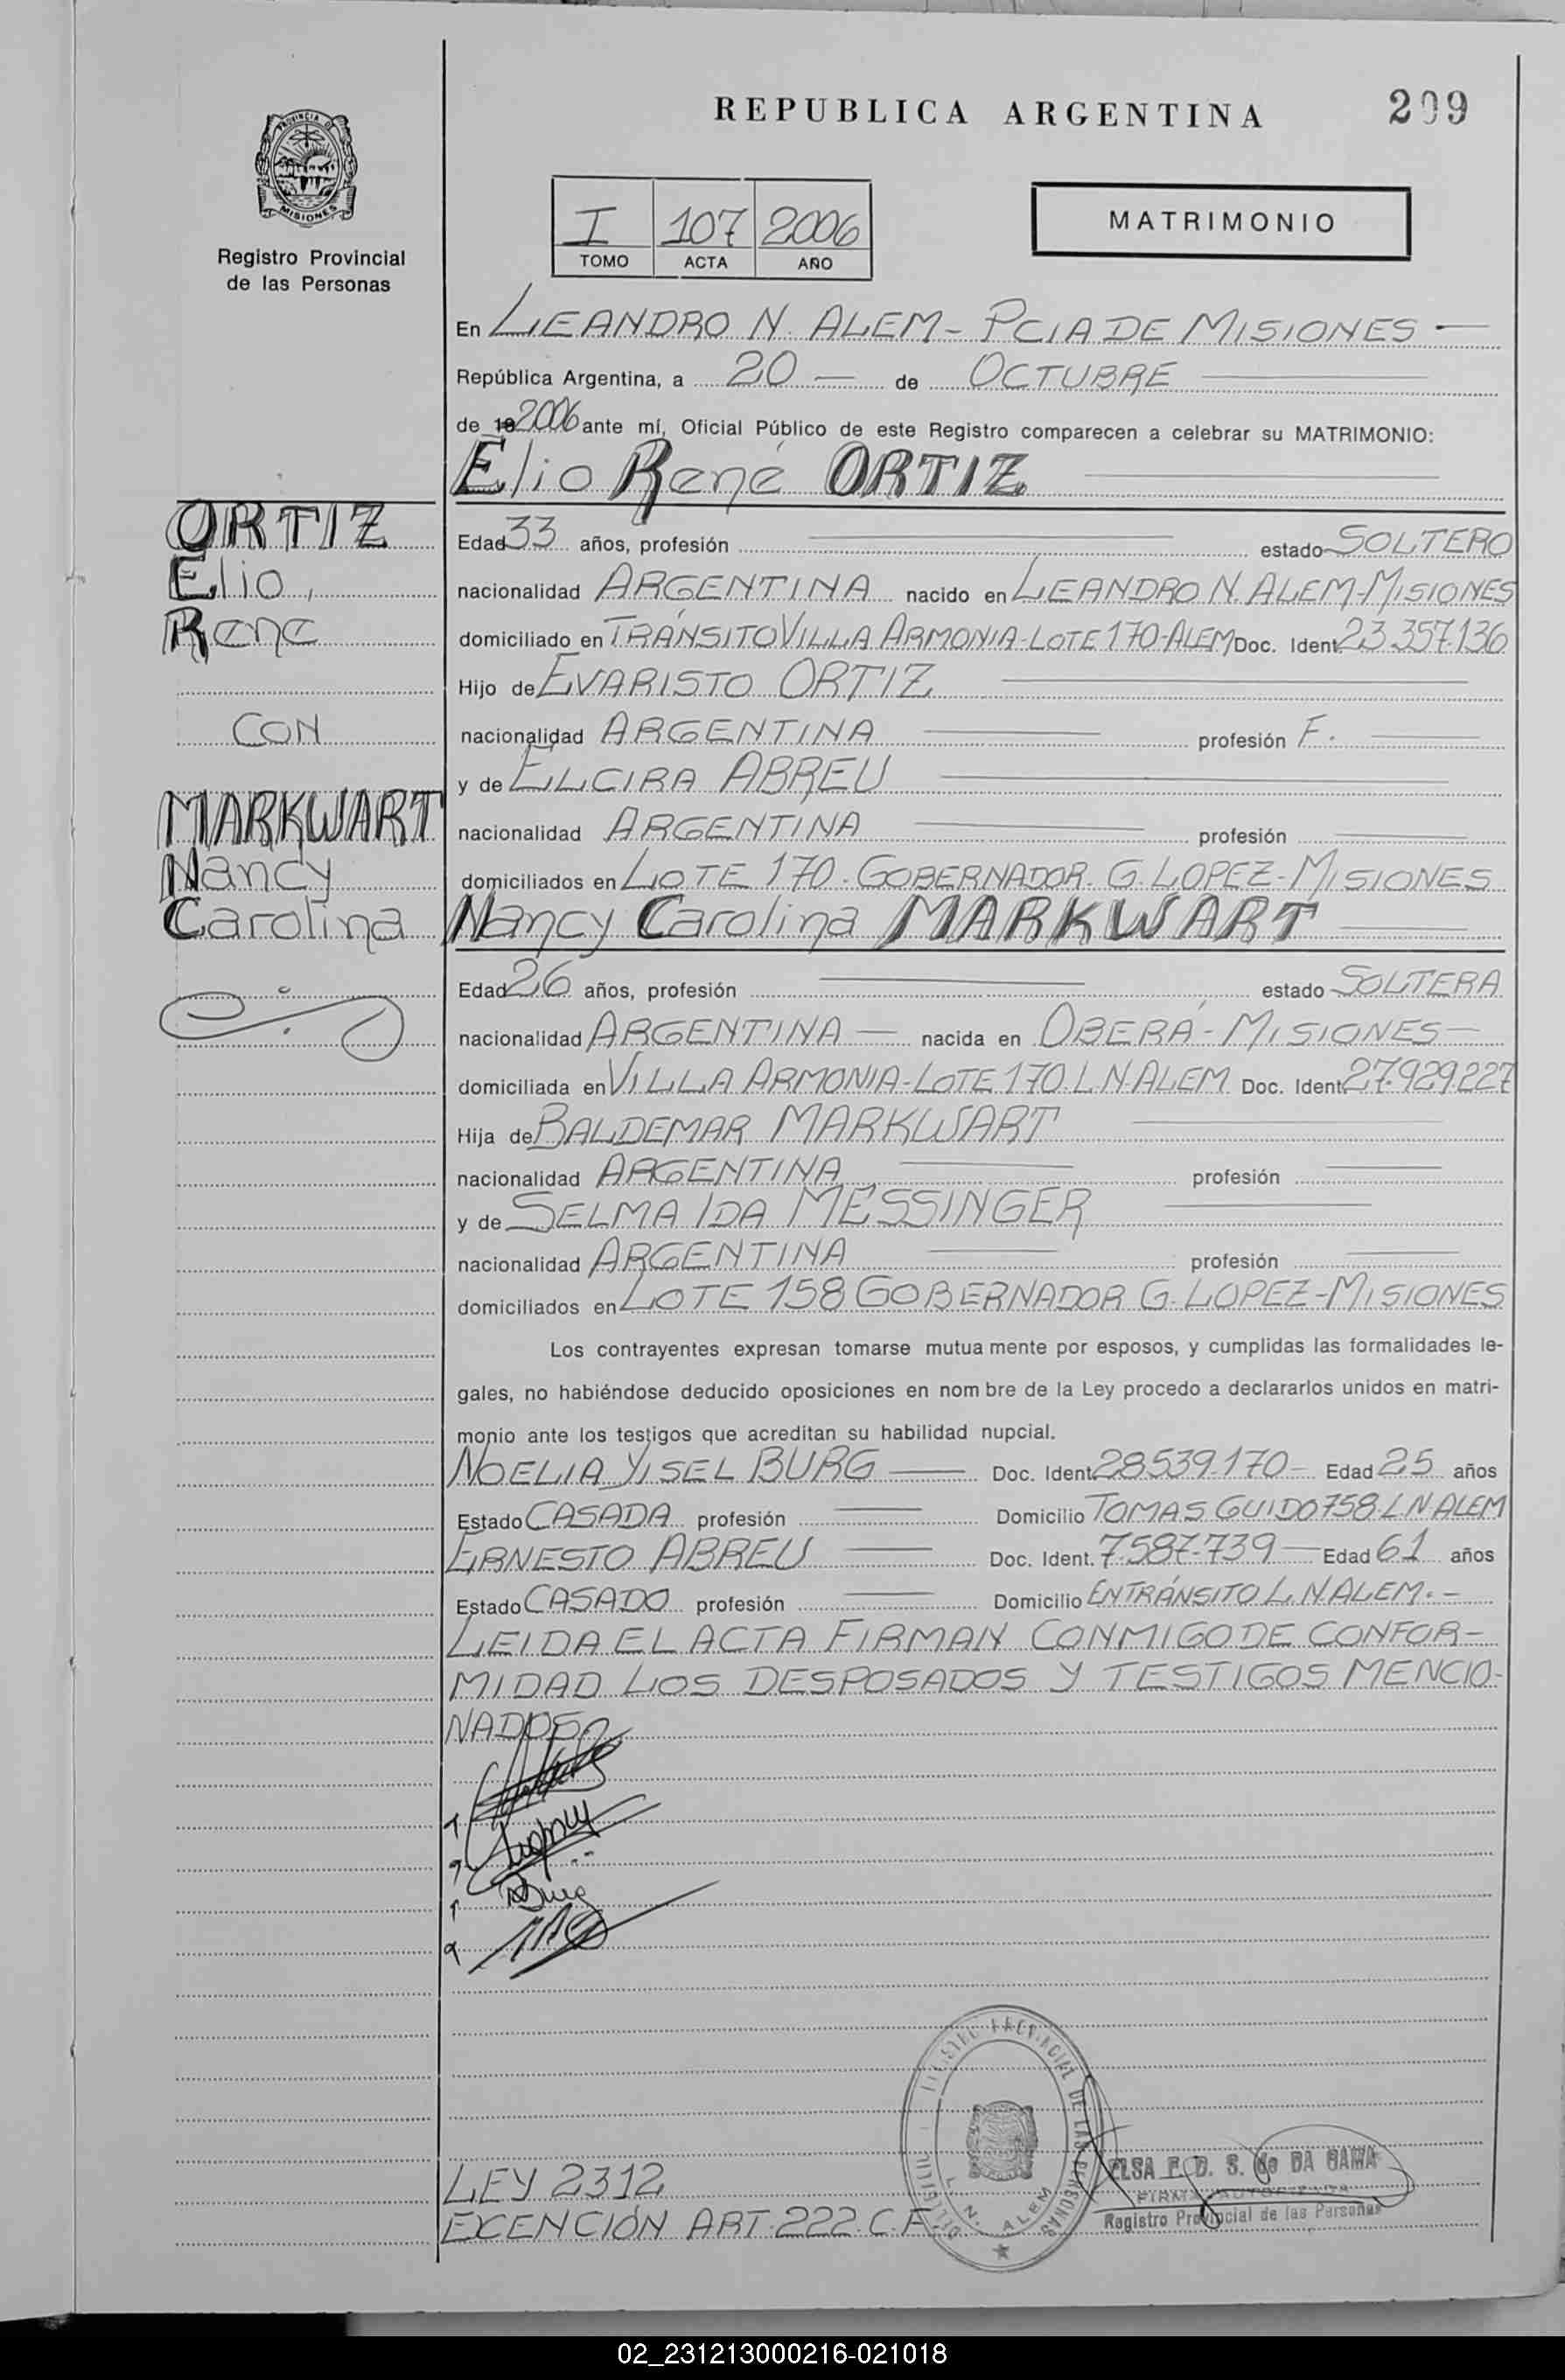 REPUBLICA ARGENTINA
209
PROVINCIA DE
MISIONES
Registro Provincial
de las Personas
I 107 2006
TOMO ACTA AÑO
MATRIMONIO
En LEANDRO N. ALEM - PCIA DE MISIONES —
República Argentina, a 20 — de OCTUBRE
de 19 2006 ante mí, Oficial Público de este Registro comparecen a celebrar su MATRIMONIO:
Elio René ORTIZ
ORTIZ
Elio,
Rene
CON
MARKWART
Nancy
Carolina
Edad 33 años, profesión estado SOLTERO
nacionalidad ARGENTINA nacido en LEANDRO N. ALEM-MISIONES
domiciliado en TRÁNSITO VILLA ARMONIA-LOTE 170-ALEM Doc. Ident. 23.357.136
Hijo de EVARISTO ORTIZ
nacionalidad ARGENTINA profesión F.
y de ELCIRA ABREU
nacionalidad ARGENTINA profesión
domiciliados en LOTE 170 - GOBERNADOR G. LOPEZ - MISIONES
Nancy Carolina MARKWART
Edad 26 años, profesión estado SOLTERA
nacionalidad ARGENTINA — nacida en OBERÁ - MISIONES —
domiciliada en VILLA ARMONIA-LOTE 170.L.N.ALEM Doc. Ident. 27.929.227
Hija de BALDEMAR MARKWART
nacionalidad ARGENTINA profesión
y de SELMA IDA MESSINGER
nacionalidad ARGENTINA profesión
domiciliados en LOTE 158 GOBERNADOR G. LOPEZ-MISIONES
Los contrayentes expresan tomarse mutua mente por esposos, y cumplidas las formalidades le-
gales, no habiéndose deducido oposiciones en nom bre de la Ley procedo a declararlos unidos en matri-
monio ante los testigos que acreditan su habilidad nupcial.
NOELIA YISEL BURG Doc. Ident. 28539.170 - Edad 25 años
Estado CASADA profesión Domicilio TOMAS GUIDO 758.L.N ALEM
ERNESTO ABREU Doc. Ident. 7.587.739 — Edad 61 años
Estado CASADO profesión Domicilio EN TRÁNSITO L.N.ALEM. -
LEIDA EL ACTA FIRMAN CONMIGO DE CONFOR-
MIDAD LOS DESPOSADOS Y TESTIGOS MENCIO-
NADOS
Burg
REGISTRO PROVINCIAL DE LAS PERSONAS
L. N. ALEM
ELSA F. D. S. de DA GAMA
FIRMA AUTORIZADA
Registro Provincial de las Personas
LEY 2312
EXENCIÓN ART. 222. C.F.
02_231213000216-021018